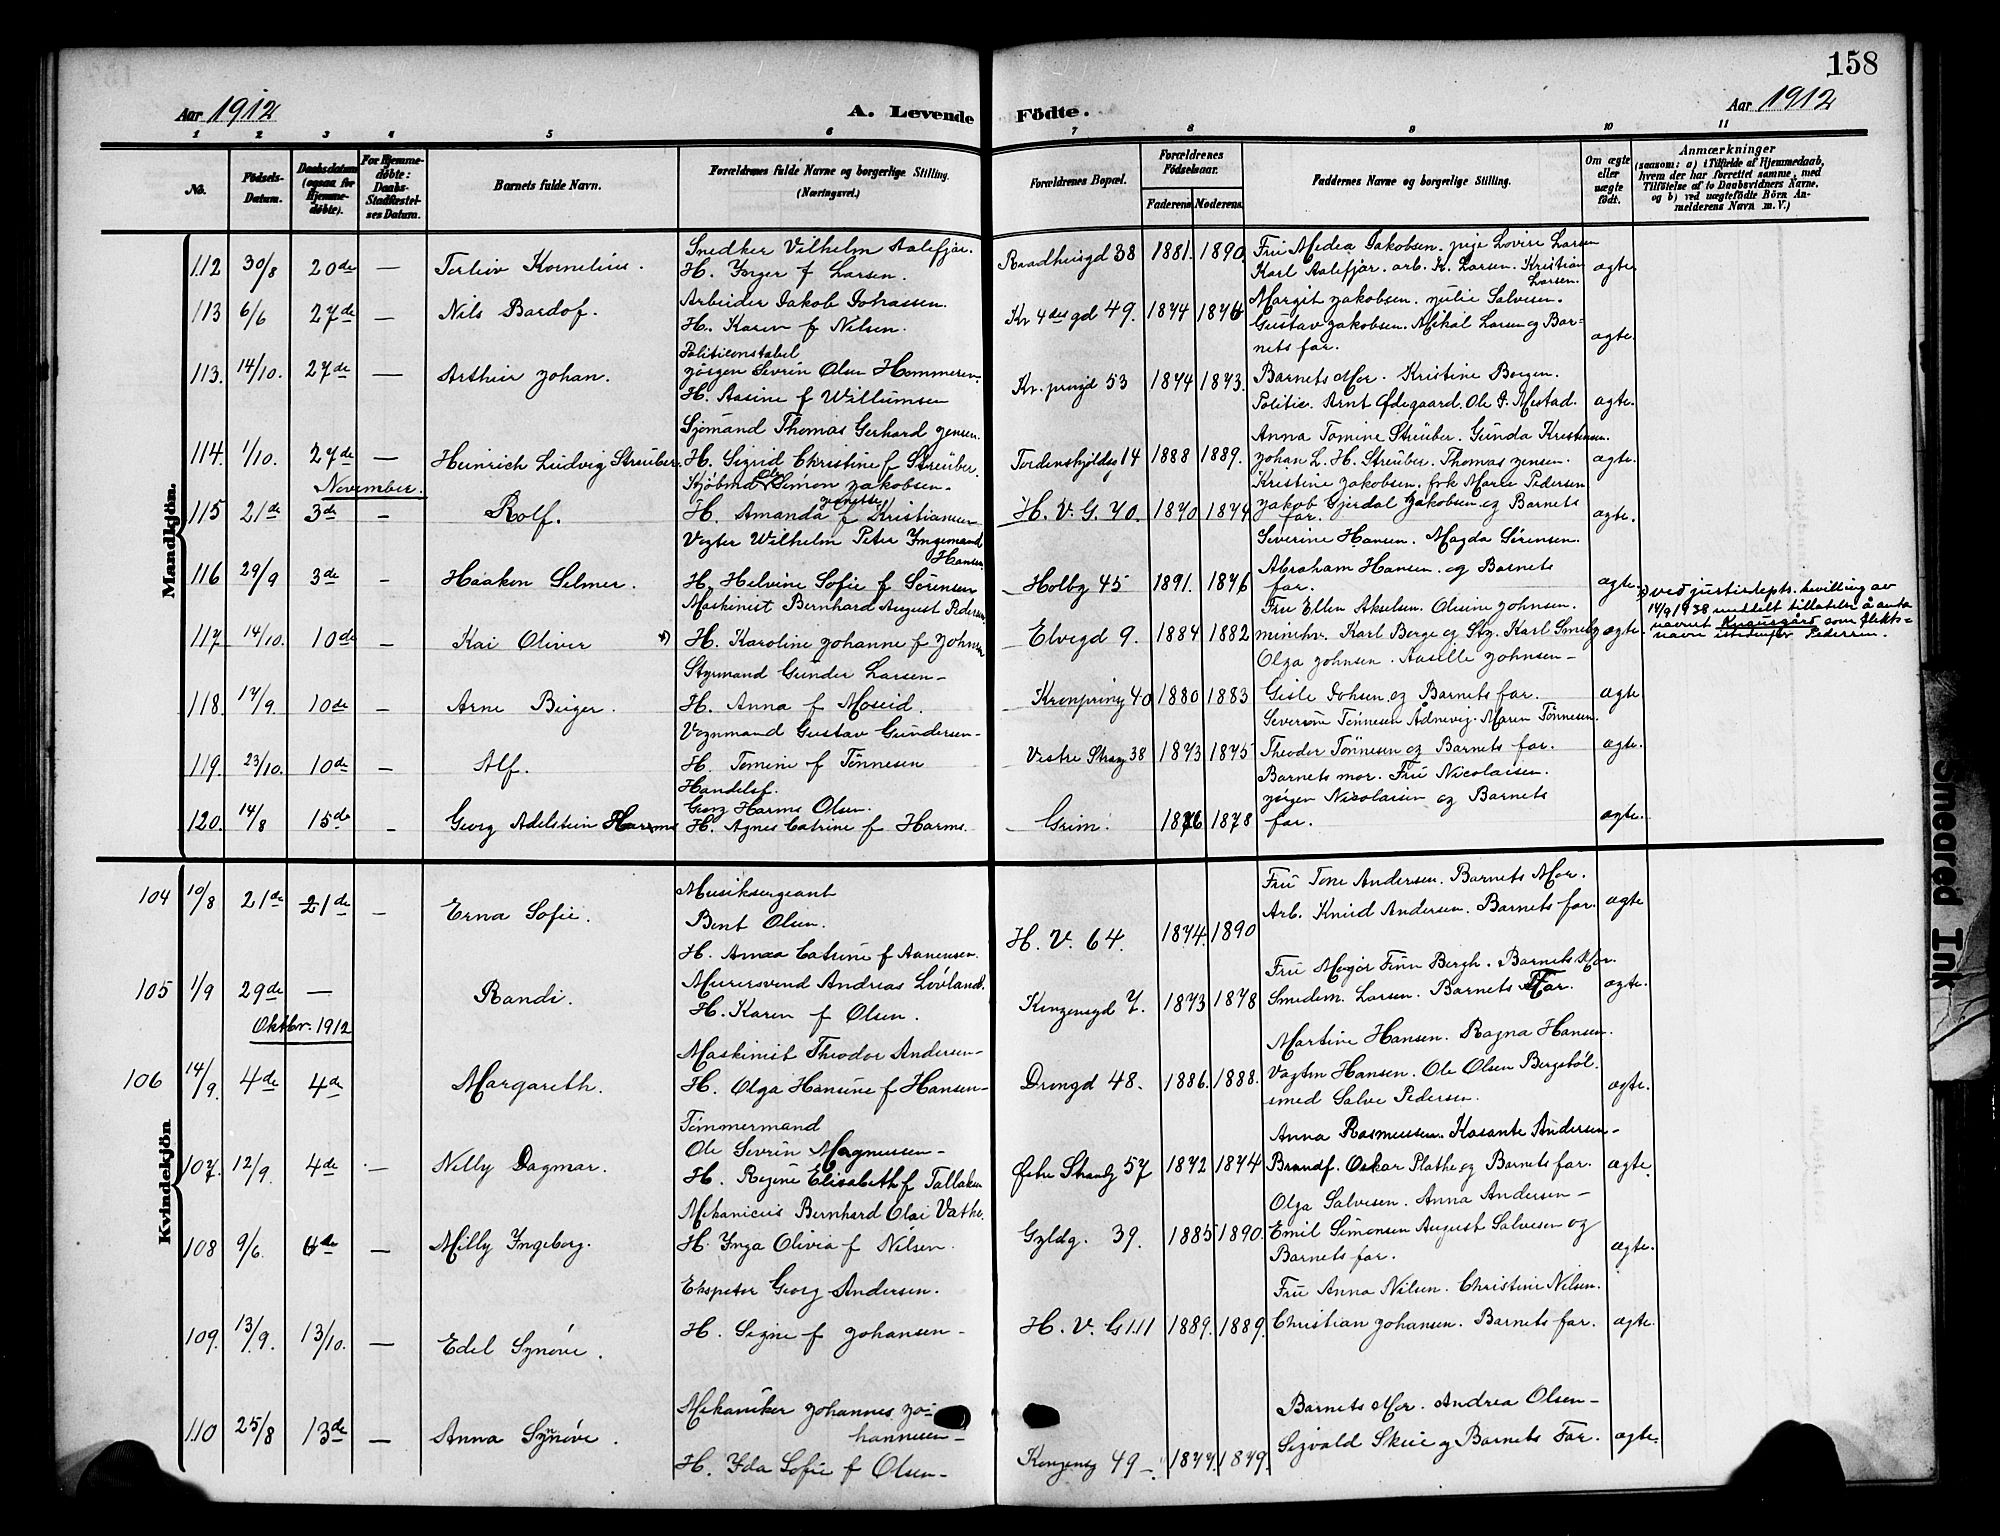 158
Aar 1912
A. Levende Födte.
Aar 1912
1 2 3 4 5 6 7 8 9 10 11
No.
Födsels-Datum.
Daabsdatum (ogsaa for Hjemme-døbte).
For Hjemme-døbte: Daabs-Stadfæstel-ses Datum.
Barnets fulde Navn.
Forældrenes fulde Navne og borgerlige Stilling. (Næringsvei.)
Forældrenes Bopæl.
Forældrenes Födselsaar.
Faderens. Moderens.
Faddernes Navne og borgerlige Stilling.
Om ægte eller uægte født.
Anmærkninger
(saasom: a) i Tilfælde af Hjemmedaab, hvem der har forrettet samme, med Tilføielse af to Daabsvidners Navne, og b) ved uægtefødte Börn An-melderens Navn m. V.)
Mandkjön.
112 30/8 20de — Terleiv Kornelius. Snedker Vilhelm Aalefjær. H. Inger f Larsen. Raadheusgd 38 1881. 1890. Fru Medea Jakobsen. pige Lovise Larsen Karl Aalefjær. arb. K. Larsen. Kristian Larsen. ægte.
113 6/6 27de — Nils Bardof. Arbeider Jakob Johassen. H. Karen f Nilsen. Kr 4des gd 49. 1874 1876 Margit Jakobsen. Julie Salvesen. Gustav Jakobsen. Mikal Larsen og Bar-nets far. ægte.
113. 14/10. 27de — Arthur Johan. Politiconstabel Jörgen Sevrin Olsen Hommeren. H. Aasine f Willumsen Kr. prinsgd 53 1874 1873. Barnets Mor. Kristine Borgen. Politic. Arnt Ødegaard. Ole J. Mestad. ægte.
114. 1/10. 27de — Heinrich Ludvig Streuber. Sjömand Thomas Gerhard Jensen. H. Sigrid Christine f Streuber. Tordenskjoldsg 14 1888 1889. Anna Tomine Streuber. Gunda Kristensen. Johan L. H. Streuber. Thomas Jensen. ægte.
November.
115 21de 3de - Rolf. Kjøbmd Simon Jakobsen. H. Amanda Jenette f Kristiansen H. V. G. 70. 1870 1874 Kristine Jakobsen. frk Marie Pedersen Jakob Gjerdal Jakobsen og Barnets far. ægte.
116 29/9 3de - Haakon Selmer. Vogter Wilhelm Peter Ingemand Hansen H. Helvine Sofie f Sörensen Holbg 45 1891. 1876 Severine Hansen. Magda Sörensen. Abraham Hansen. og Barnets far. ægte.
117. 14/10. 10de - Kai Oliver x) Maskinist Bernhard August Pedersen. H. Karoline Johanne f Johnsen Elvegd 9. 1884 1882 Fru Ellen Akselsen. Olevine Johnsen. Karl Berge og Stg. Karl Smeby ægte.
x) ved justisdepts. bevilling av 14/9 1938 meddelt tillatelse å anta navnet som slekts-navn istedenfor Pedersen.
118. 17/9. 10de - Arne Birger. Styrmand Gunder Larsen- H. Anna f Moseid. Kronpring 40 1880 1883 Olga Johnsen. Aasille Johnsen- Gisle Johsen og Barnets far. ægte
119. 23/10. 10de - Alf. Vognmand Gustav Gundersen- H. Tomine f Tönnesen Vestre Strag 38 1873 1875 Seversine Tønnesen Ådnevig. Maren Tönnesen. Theodor Tönnesen og Barnets far. ægte.
120. 14/8 15de - Georg Adelstein Harms Handelsf. Georg Harms Olsen. H. Agnes Catrine f Harms. Grim. 1876 1878 Barnets mor. Fru Nicolaisen. Jörgen Nicolaisen og Barnets far. ægte.
Kvindekjön
104 10/8 21de 21de - Erna Sofie. Musiksergeant Bent Olsen. H. Anna Catrine f Aanensen. H. V. 64. 1874. 1890 Fru Tone Andersen. Barnets Mor. Arb. Knud Andersen. Barnets far. ægte
105 1/9 29de — Randi. Murersvend Andreas Lövland. H. Karen f Olsen. Kongensgd 7. 1873 1878 Fru Major Finn Bergh. Barnets Mor. Smedem. Larsen. Barnets Far. ægte.
Oktbr. 1912
106 14/9. 4de 4de Margareth. Maskinist Theodor Andersen- H. Olga Hansine f Hansen- Drongd 48. 1886. 1888. Martine Hansen. Ragna Hansen. Vagtm Hansen. Ole Olsen Bergsböl. smed Salve Pedersen. ægte.
107. 12/9. 4de - Nelly Dagmar. Tömmermand Ole Sevrin Magnussen- H. Regine Elisabeth f Tallaksen Østre Strandg 57 1872 1874 Anna Rasmussen. Kasante Andersen- Brandf. Oskar Plathe og Barnets far. ægte.
108 9/6. 6de — Milly Ingeborg. Mekanicus Bernhard Olai Vathe. H. Inga Olivia f Nilsen. Gyldg. 39. 1885 1890. Olga Salvesen. Anna Andersen- Emil Simonsen August Salvesen og Barnets far. ægte.
109. 13/9. 13/10. — Edel Synöve. Ekspeter Georg Andersen. H. Signe f Johansen- H. V. G 111 1889. 1889. Fru Anna Nilsen. Christine Nilsen. Christian Johansen. Barnets far. ægte.
110 25/8 13de — Anna Synöve. Mekaniker Johannes Jo-hannesen- H. Ida Sofie f Olsen- Kongensg 49 -. 1877. 1879. Barnets Mor. Andrea Olsen- Sigvald Skeie og Barnets Far. ægte.
Smeared Ink